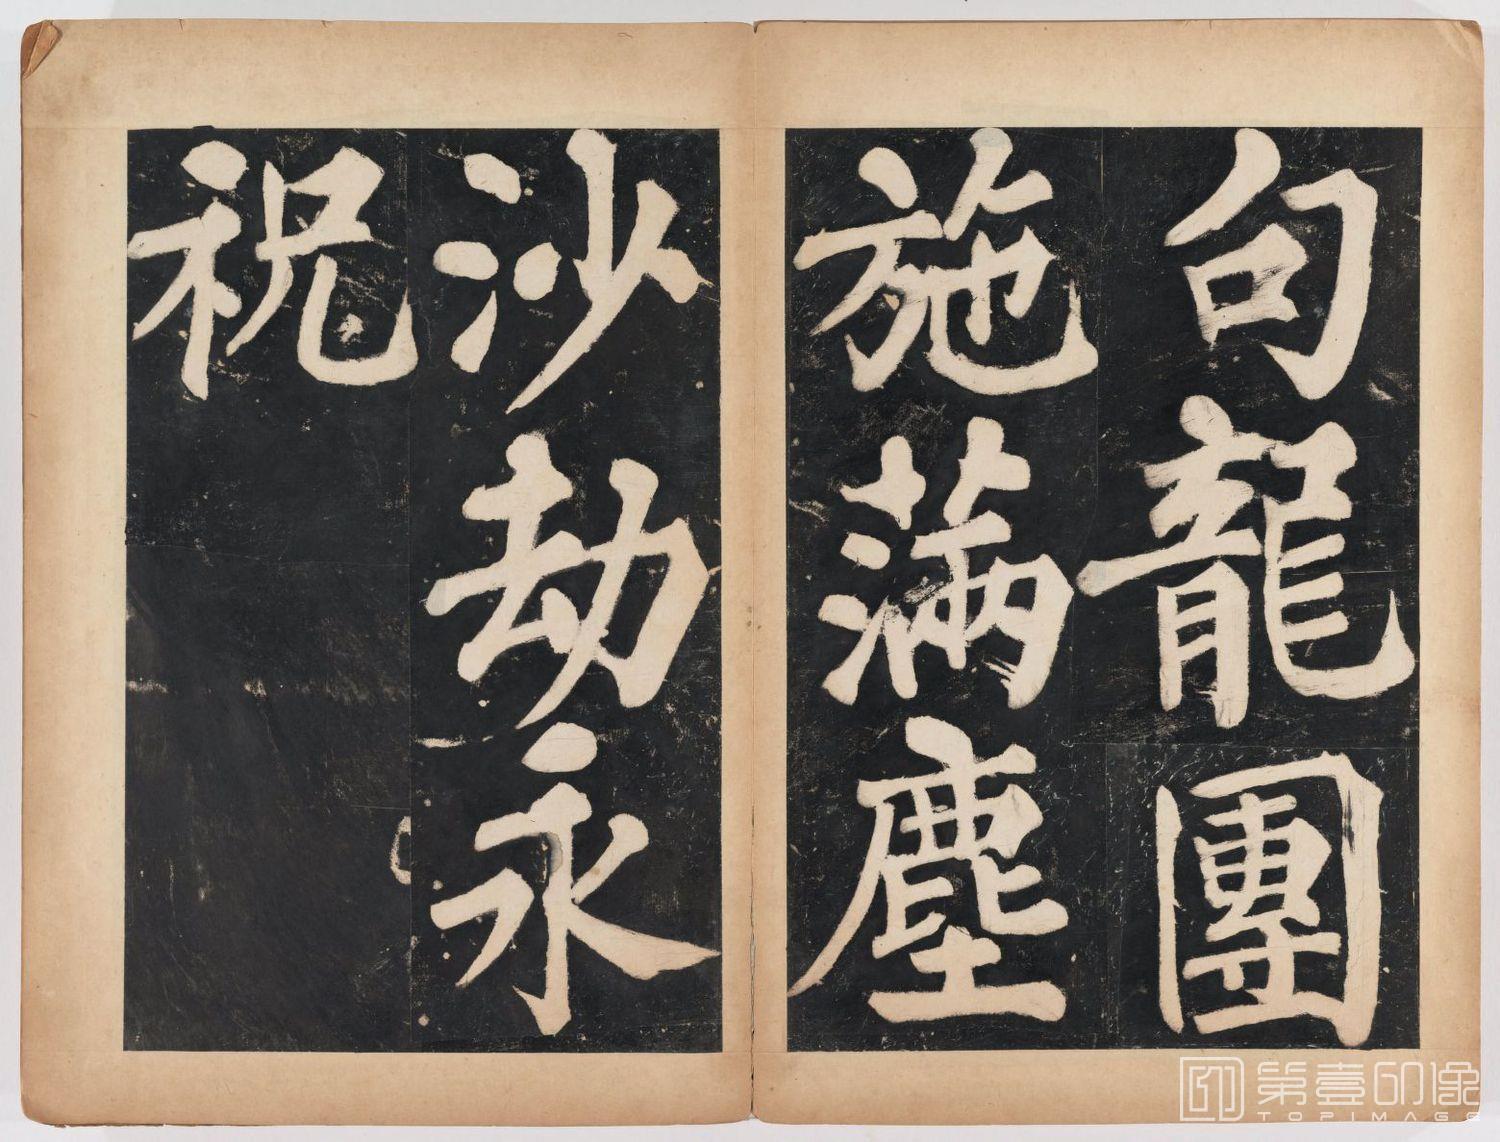 句龍團
施滿塵
沙劫永
祝
第壹印像
TOPIMAGE